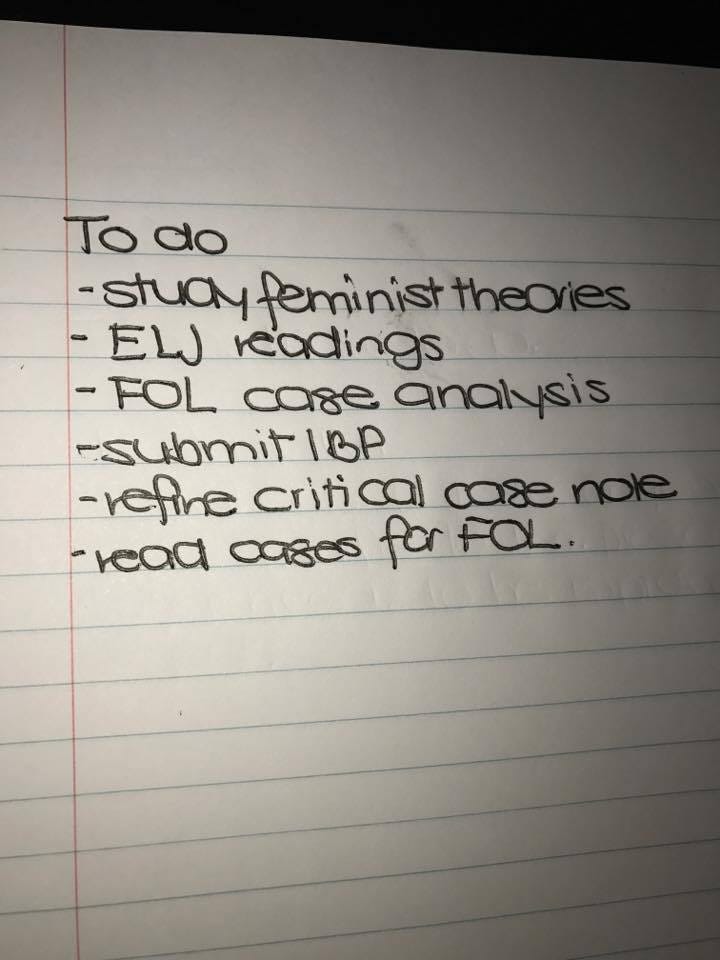 To do
- study feminist theories
- ELJ readings
- FOL case analysis
- submit IBP
- refine critical case note
- read cases for FOL.